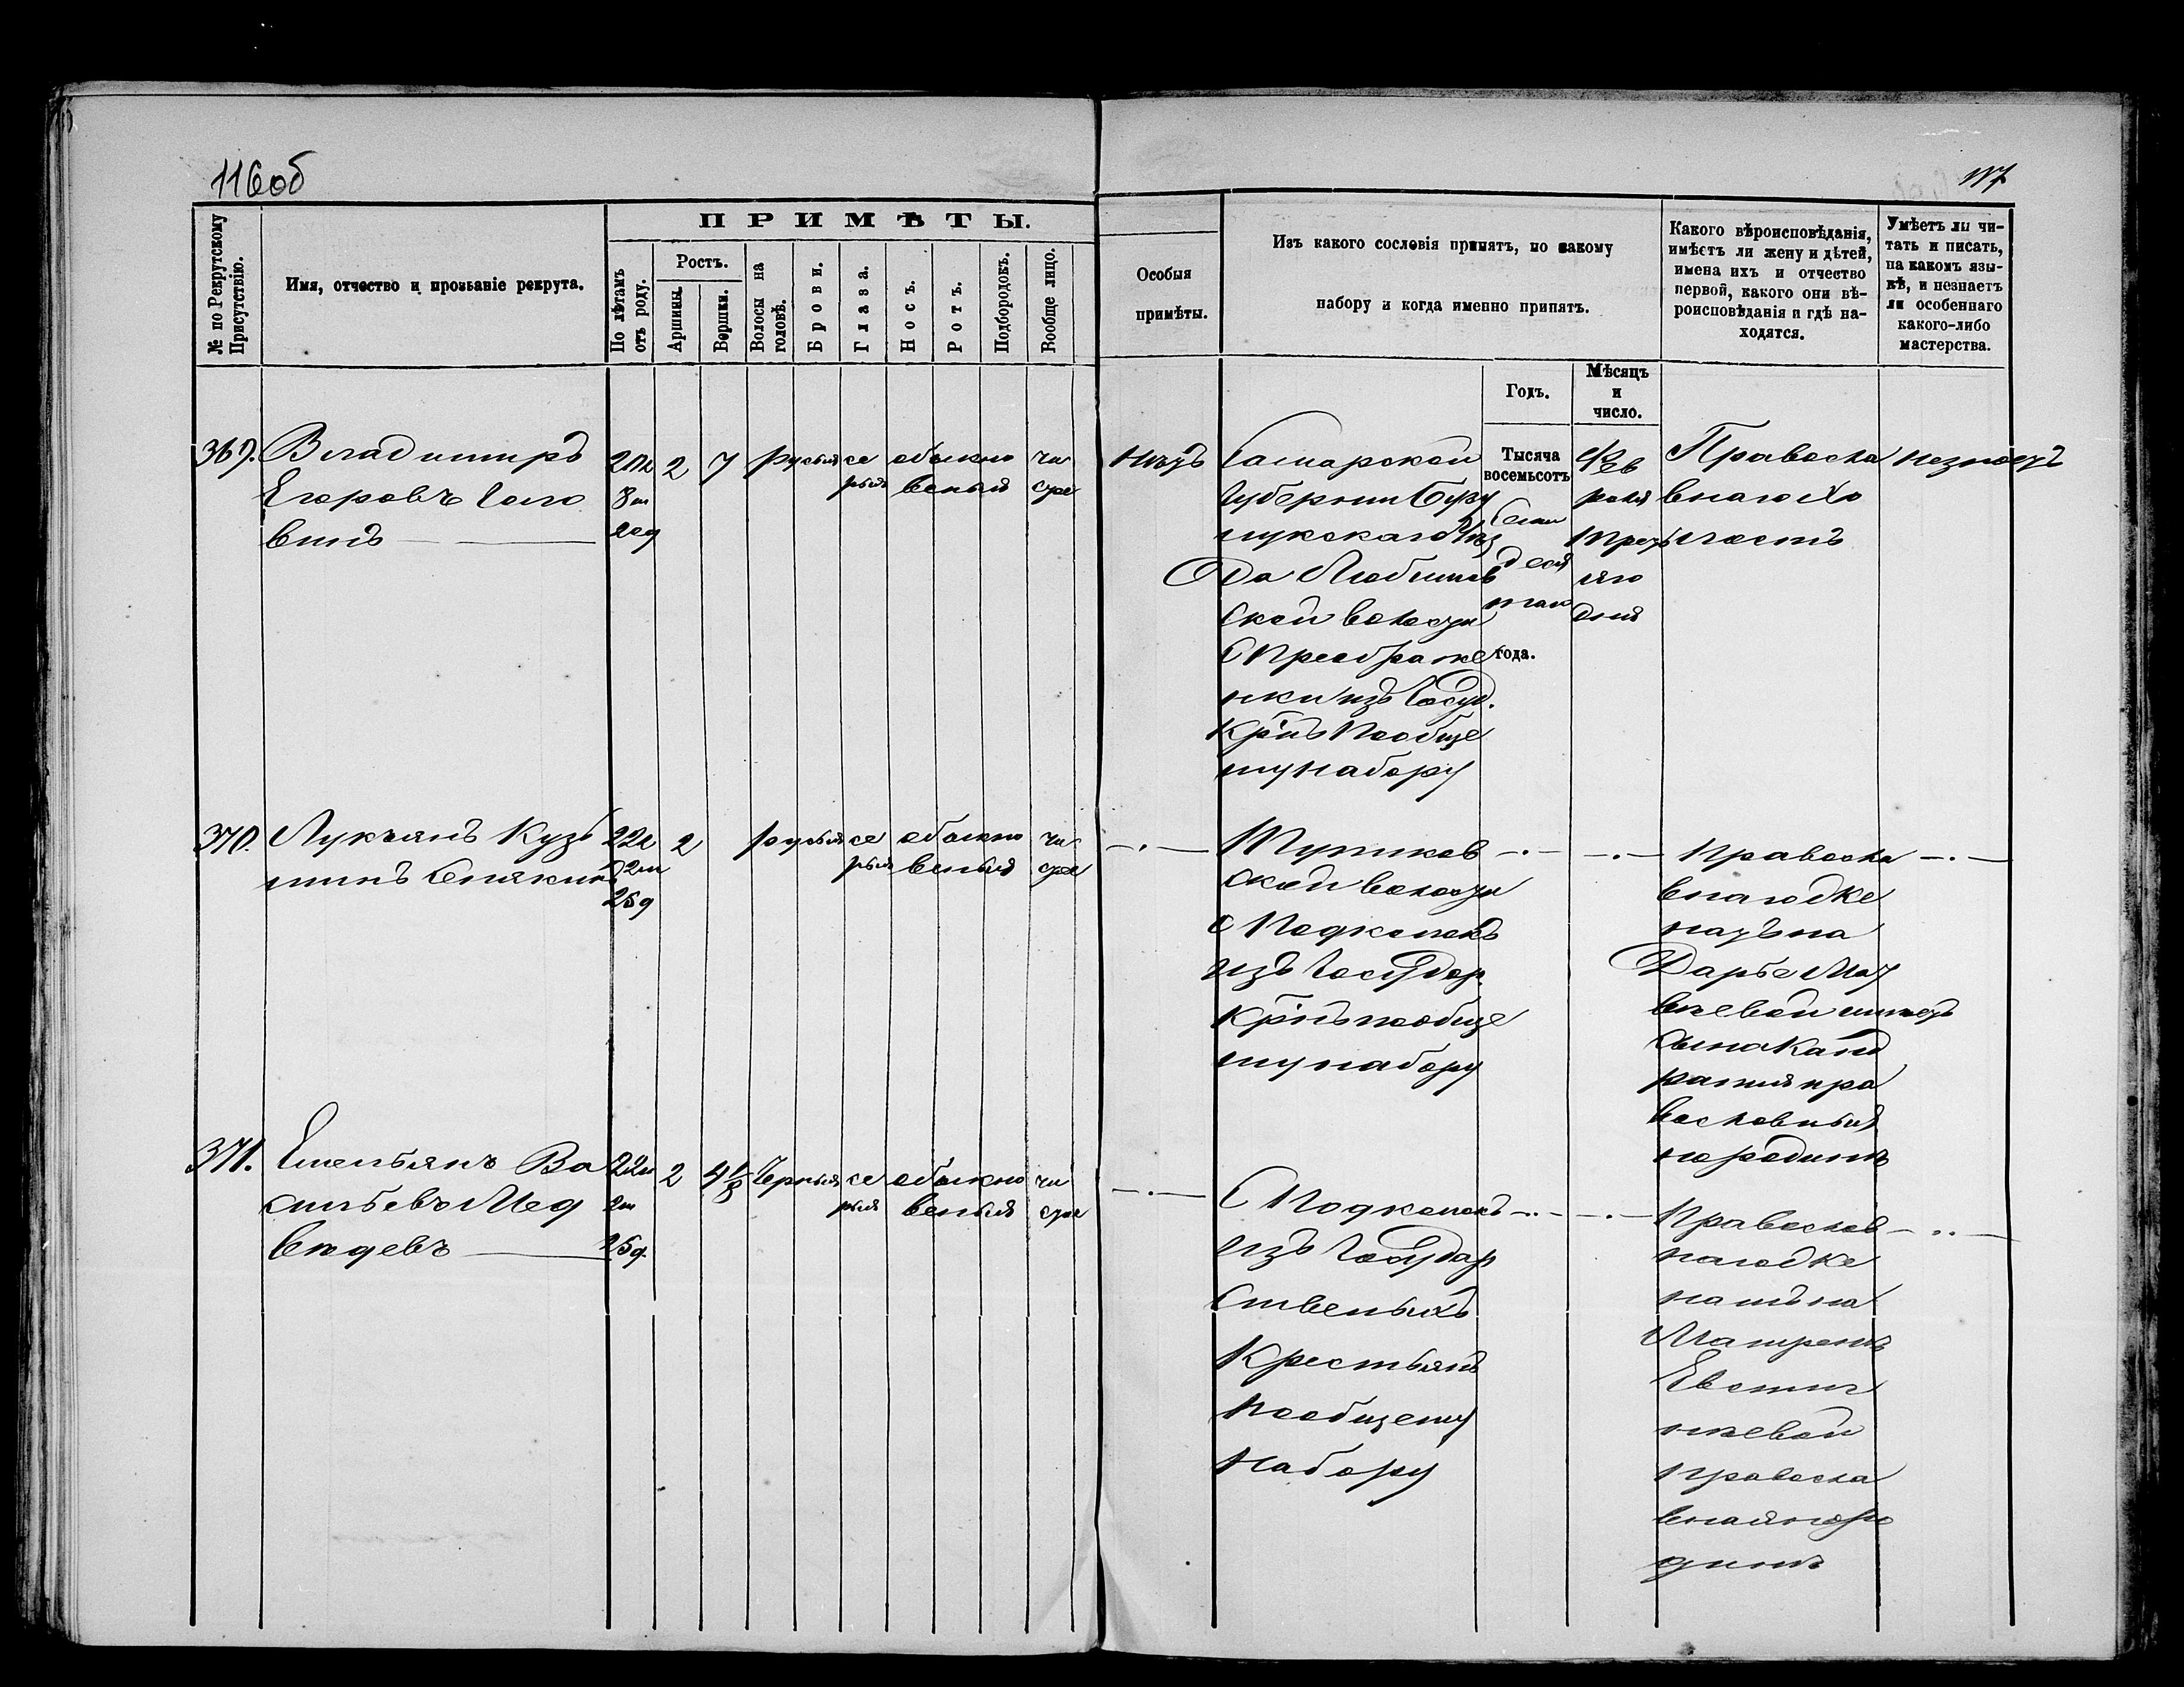 116об
117
№ по Рекрутскому Присутствію.
Имя, отчество и прозваніе рекрута.
ПРИМѢТЫ.
По лѣтамъ отъ роду.
Ростъ.
Аршины.
Вершки.
Волосы на головѣ.
Брови.
Глаза.
Носъ.
Ротъ.
Подбородокъ.
Вообще лицо.
Особыя
примѣты.
Изъ какого сословія принятъ, по какому
набору и когда именно принятъ.
Годъ.
Мѣсяцъ
и
число.
Какого вѣроисповѣданія,
имѣетъ ли жену и дѣтей,
имена ихъ и отчество
первой, какого они вѣ-
роисповѣданія и гдѣ на-
ходятся.
Умѣетъ ли чи-
тать и писать,
на какомъ язы-
кѣ, и незнаетъ
ли особеннаго
какого-либо
мастерства.
369.
Владимиръ
Егоровъ Голо
винъ
21л
8м
22д
2
7
русыя
се
рыя
обыкно
веныя
чи
стое
нѣтъ
Самарской
Губерніи Бузу
лукскаго Уѣз
да Любимов
ской волости
С Преображе
нки изъ Госуд.
Крнъ По обще
му набору
Тысяча
восемьсотъ
семи
деся
таго
года.
Фев
раля
трет
яго
дня
Правосла
внаго Хо
лостъ
незнаетъ
370.
Лукъянъ Кузь
минъ Сенякинъ
22л
2м
25д
2
русыя
се
рыя
обыкно
веныя
чи
стое
Тупиков
ской волости
С Подколокъ
изъ Государ.
Крнъ по обще
му набору
Правосла
внаго Же
натъ на
Дарье Мат
веевой имеетъ
сына Канд
ратия пра
вославныя
на родинѣ
371.
Емельянъ Ва
сильевъ Мед
ведевъ
22л
2м
25д.
2
4 1/8
Черныя
се
рыя
обыкно
веныя
чи
стое
С Подколокъ
изъ Государ
ственыхъ
Крестьянъ
По общему
Набору
Православ
наго Же
натъ на
Матренѣ
Евстиг
неевой
Правосла
вная на ро
динѣ